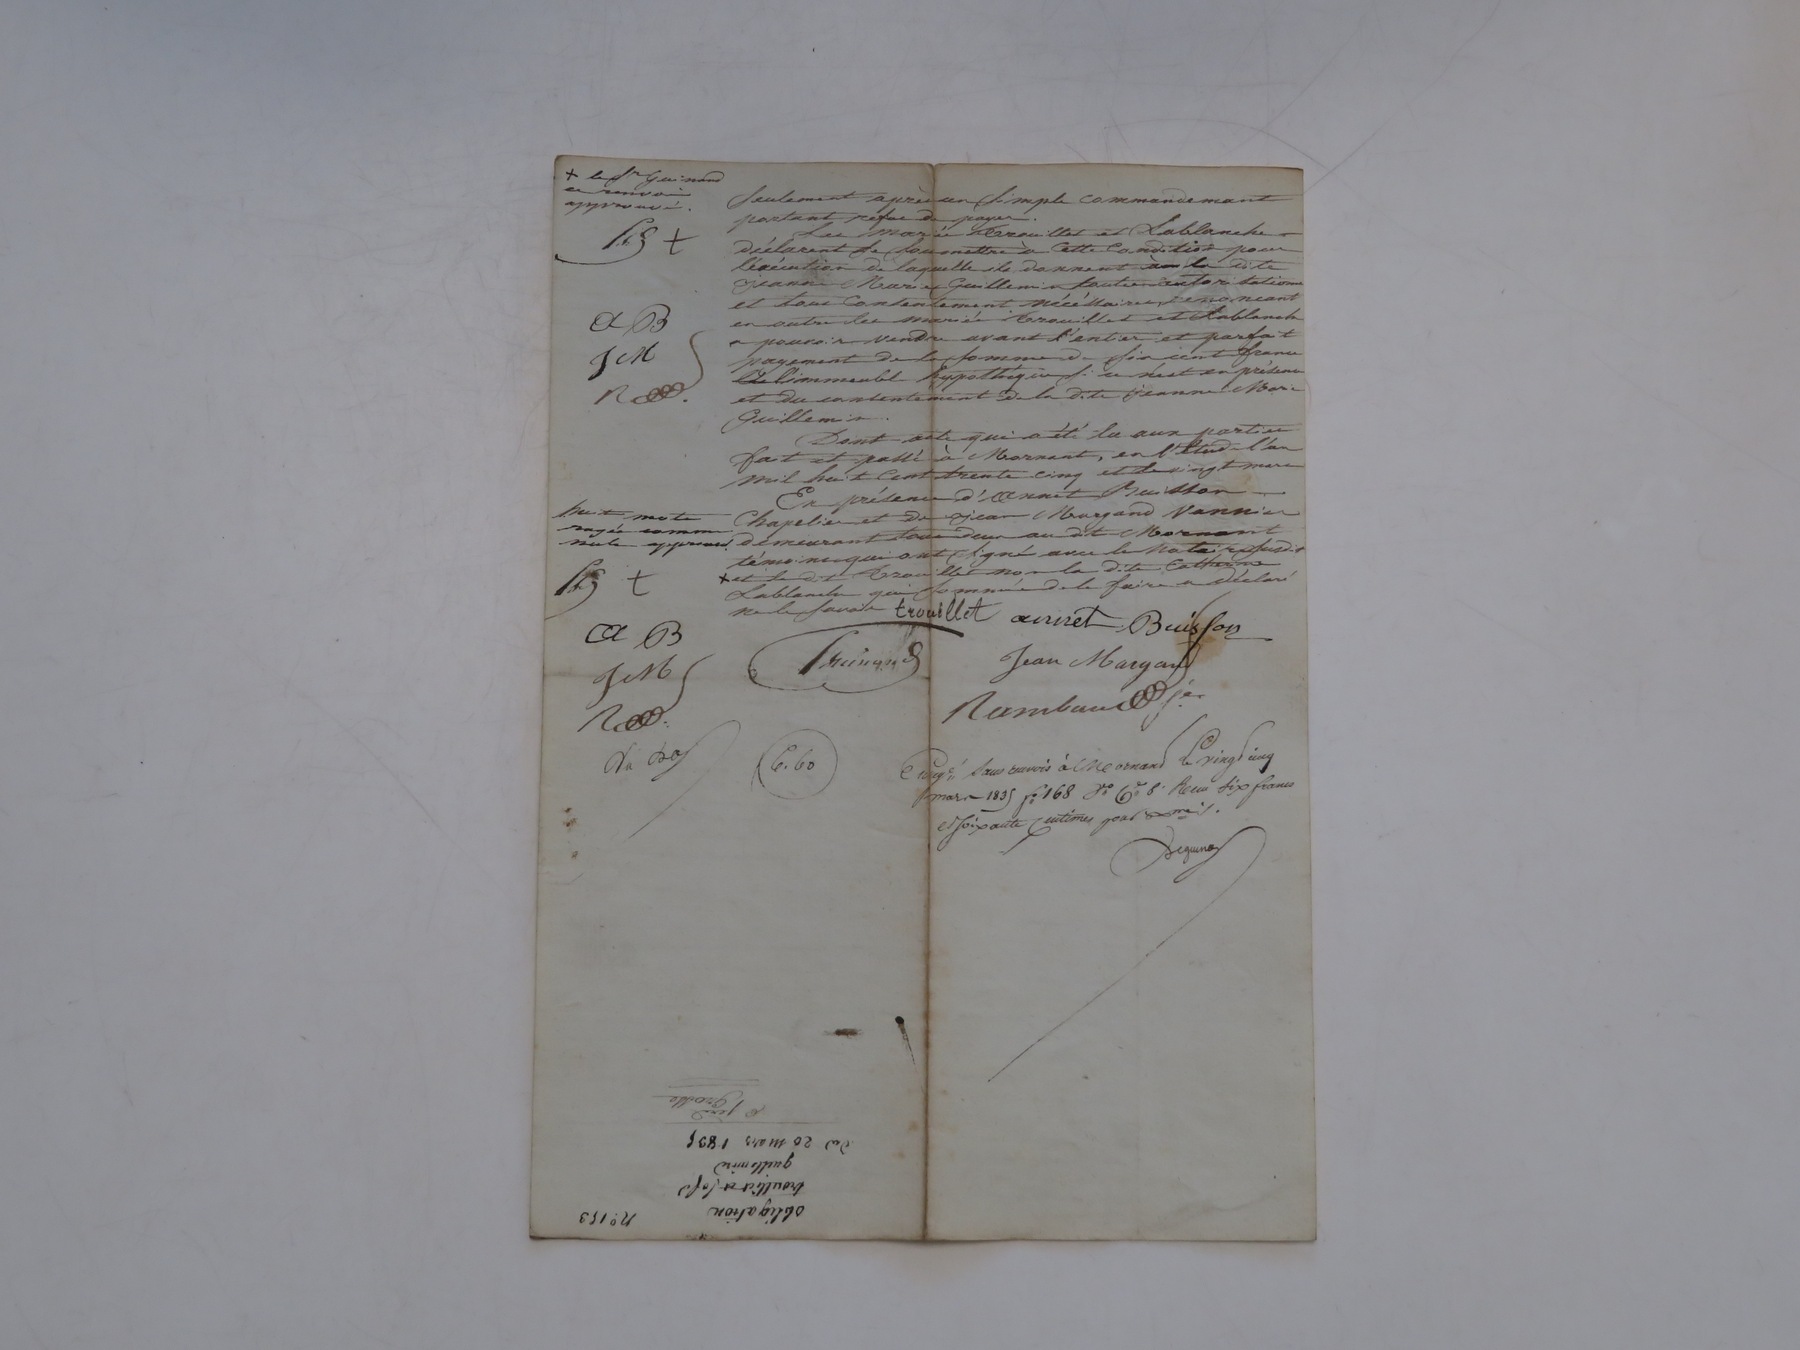 + le Sr Guinand
ce renvoi
approuvé.
A B
J M
seulement après un simple commandemant
portant refus de payer.
Les mariés Trouillet et Lablanche
déclarent se soumettre à cette condition pour
l'éxécution de laquelle ils donnent à la dite
Jeanne Marie Guillemin toutes autorisations
et tous consentement nécéssaires, renoncant
en outre les mariés Trouillet et Lablanche
a pouvoir vendre avant l'entier et parfait
payement de la somme de six cent francs
l'immeubl hypothéqué si ce n'est en présence
et du consentement de la dite Jeanne Marie
Guillemin.
Dont acte qui a été lu aux parties
fait et passé à Mornant, en l'étude l'an
mil huit cent trente cinq et le vingt mars
En présence d'annet Buisson
Chapelier et de Jean Margand Vannier
demeurant tous deux au dit Mornant
témoins qui ont signé avec le notaire susdit
+ et le dit Trouillet non la dite Catherine
Lablanche qui sommée de le faire a déclaré
ne le savoir
huit mots
rayés comme
nuls approuvés
A B
J M
trouillet annet Buisson
Jean Margand
Rambaud
6.60
Enregé sans renvois à Mornand le vingt cinq
mars 1835 fo 168 Vo Co 8 Reçu six francs
et soixante centimes pour
No 153
obligation
trouillet et
guillemin
du 20 mars 1835
Grosse